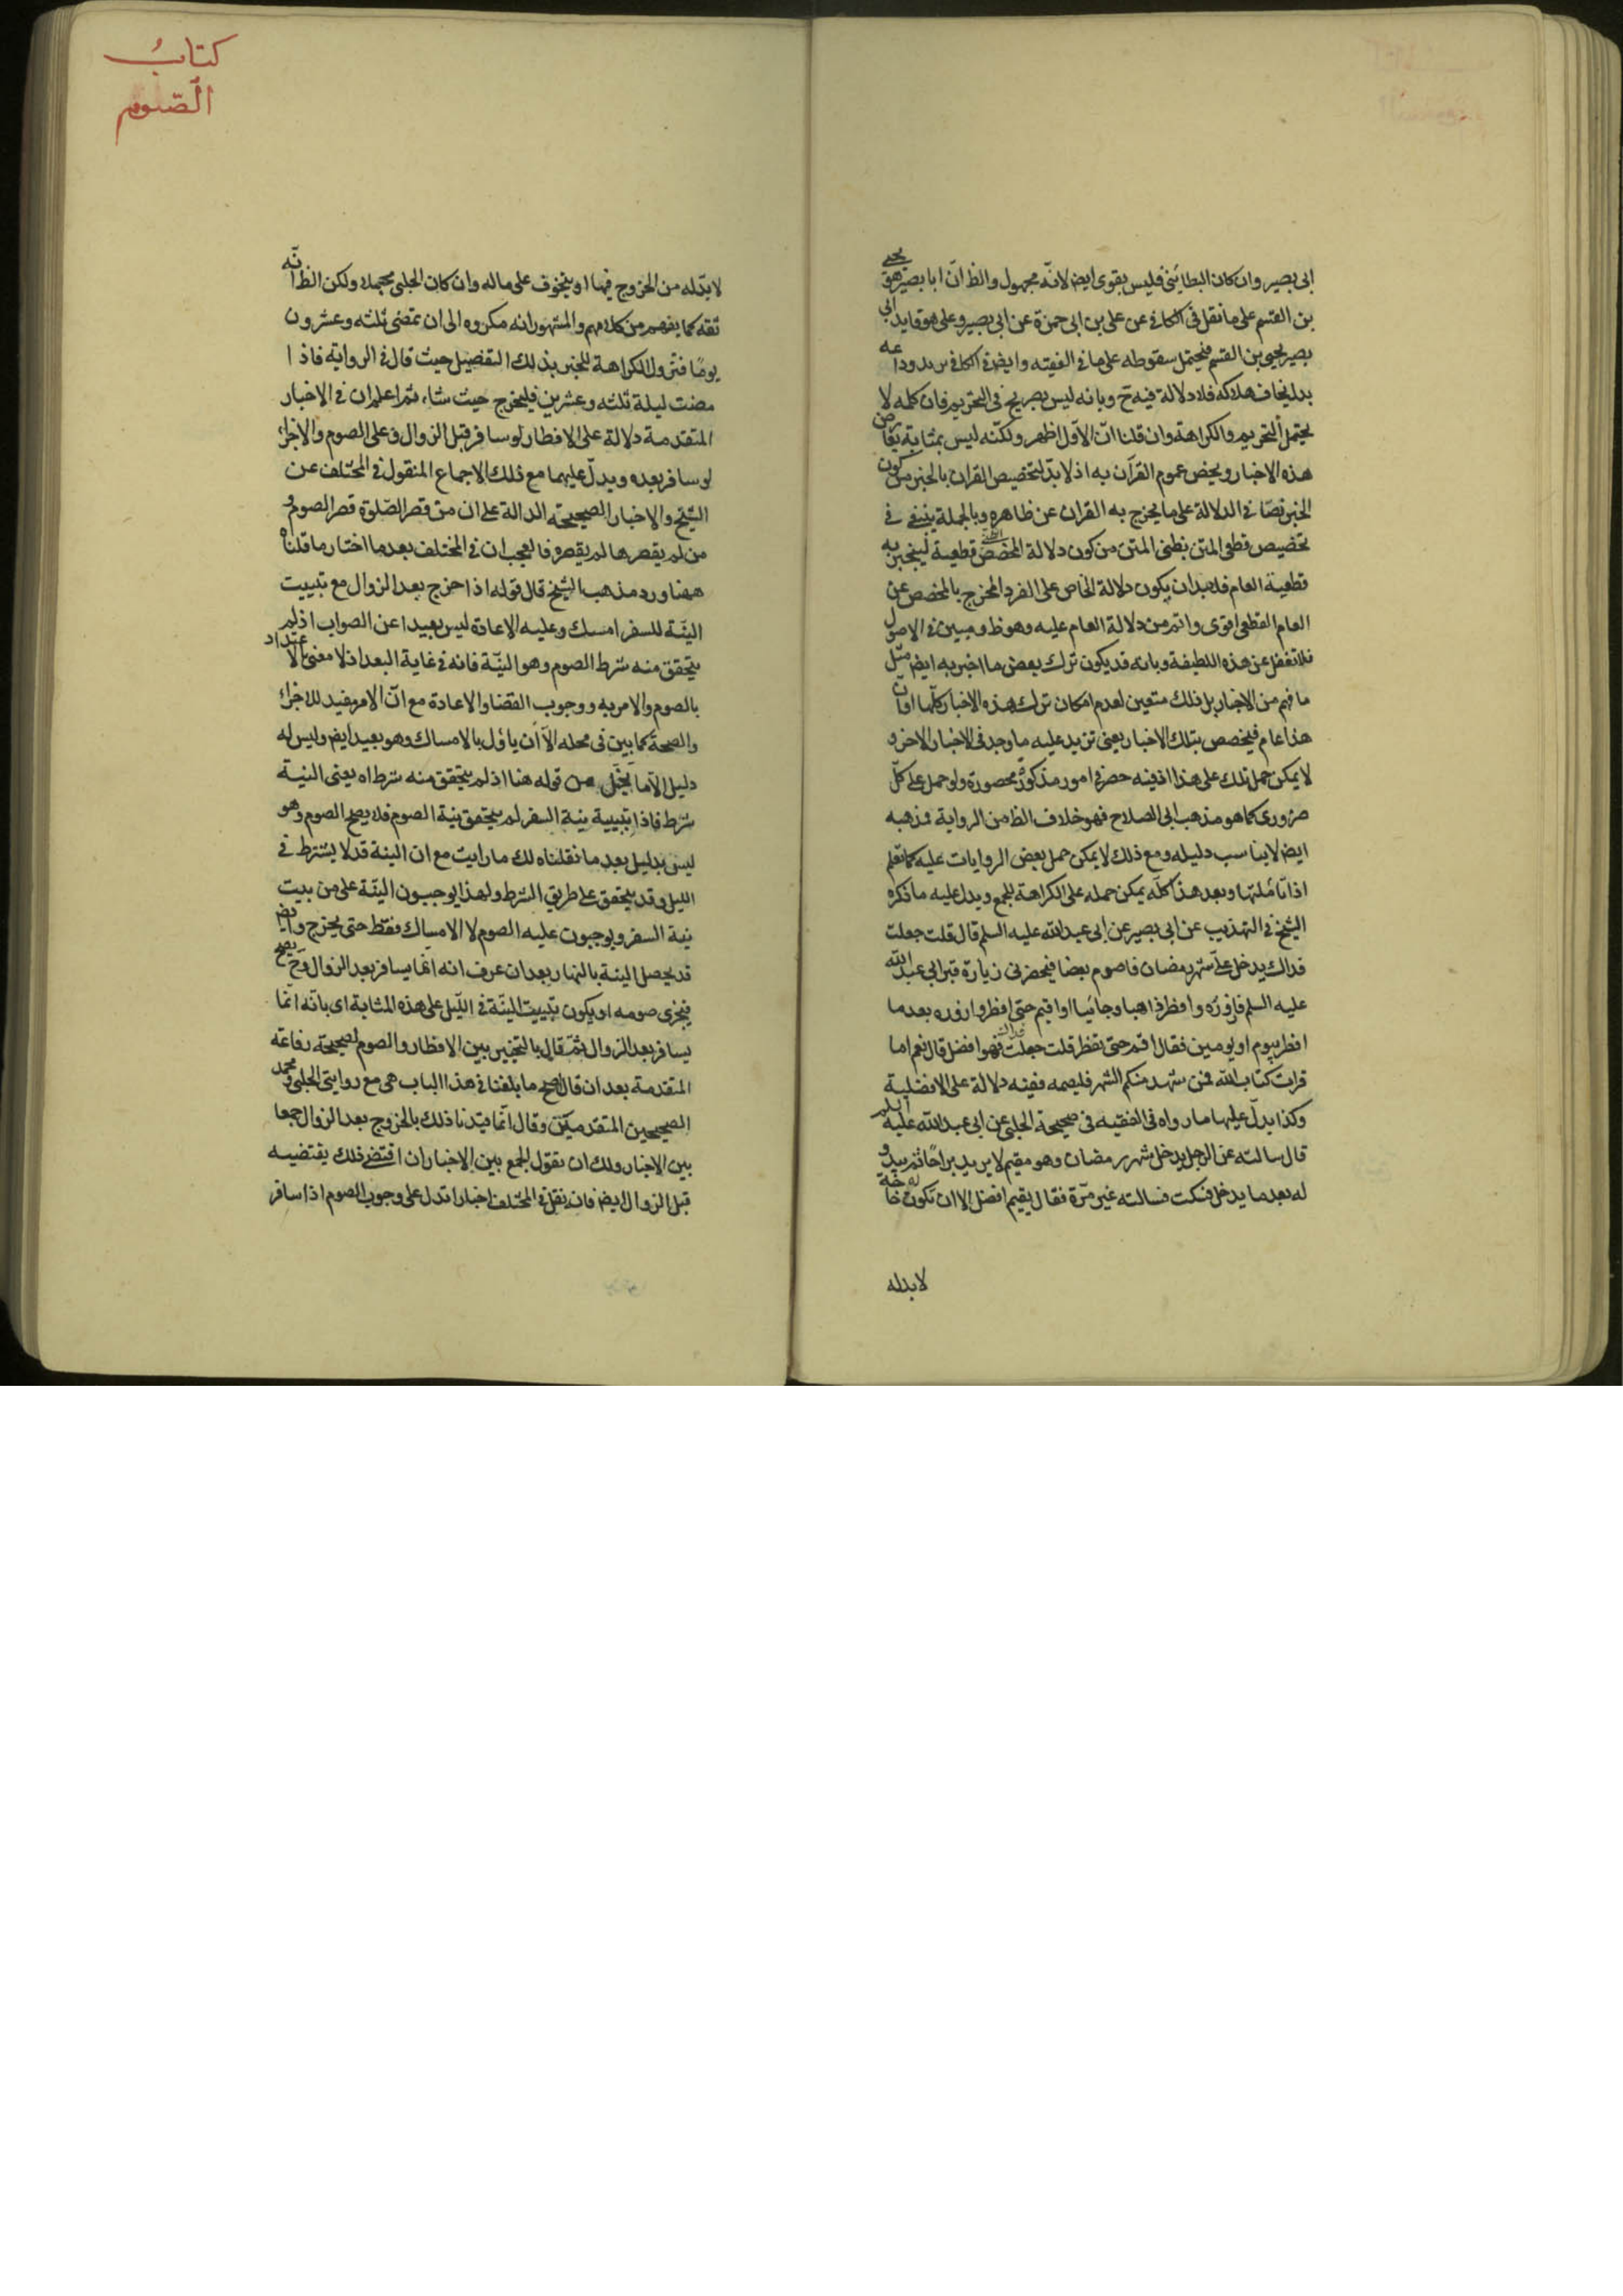 ابى بصير وان كان البطائنى فليس بقوى ايض لانه مجهول والظ ان ابا بصير هو يحيى
بن القسم على ما نقل فى الكافى عن على بن ابى حمزة عن ابى بصير وعلى هو قايد ابى
بصير يحيى بن القسم فيحتمل سقوطه على ما فى الفقيه وايض فى الكافى
بدل نخاف هلاكه فلا دلالة فيه ح وبانه ليس بصريح فى التحريم فان كلمه لا
يحتمل التحريم والكراهة وان قلنا ان الاول اظهر ولكنه ليس بمثابة يعارض
هذه الاخبار ويخص عموم القرآن به اذ لا بد لتخصيص القران بالخبر من كون
الخبر نصا فى الدلالة على ما يخرج به القران عن ظاهره وبالجملة ينبغى فى
تخصيص قطعى المتن بظنى المتن من كون دلالة المخصص الظنى قطعية لينجبر به
قطعية العام فلا بد ان يكون دلالة الخاص على الفرد المخرج بالمخصص عن
العام القطعى اقوى واتم من دلالة العام عليه وهو ظ ومبين فى الاصول
فلا تغفل عن هذه اللطيفة وبانه قد يكون ترك بعض ما اخبر به ايض مثل
ما فهم من الاخبار بل ذلك متعين لعدم امكان ترك هذه الاخبار كلها اوان
هذا عام فيخصص بتلك الاخبار يعنى تزيد عليه ما وجد فى الاخبار الاخر و
لا يمكن حمل تلك على هذا اذ فيه حصر فى امور مذكورة محصورة ولو حمل على كل
ضرورى كما هو مذهب ابى الصلاح فهو خلاف الظ من الرواية ومذهبه
ايض لا يناسب دليله ومع ذلك لا يمكن حمل بعض الروايات عليه كما تعلم
اذا تأملتها وبعد هذا كله يمكن حمله على الكراهة للجمع ويدل عليه ما ذكره
الشيخ فى التهذيب عن ابى بصير عن ابى عبد الله عليه السلم قال قلت جعلت
فداك يدخل على شهر رمضان فاصوم بعضا فيحضرنى زيارة قبر ابى عبد الله
عليه السلم فازوره وافطر ذاهبا وجائيا او اقيم حتى افطر وازوره بعد ما
افطر بيوم او يومين فقال اقم حتى تفطر قلت جعلت فداك فهو افضل قال نعم اما
قرات كتاب الله فمن شهد منكم الشهر فليصمه ففيه دلالة على الافضلية
وكذا يدل عليها ما رواه فى الفقيه فى صحيحة الحلبى عن ابى عبد الله عليه السلم
قال سالته عن الرجل يدخل شهر رمضان وهو مقيم لا يريد براحا ثم يبدو
له بعد ما يدخل فسكت فسالته غير مرة فقال يقيم افضل الا ان تكون له حاجة
لا بد له
كتاب
الصوم
لا بد له من الخروج فيها او يتخوف على ماله وان كان الحلبى مجملا ولكن الظ انه
ثقه كما يفهم من كلامهم والمشهور انه مكروه الى ان تمضى ثلثه وعشرون
يوما فتزول الكراهة للخبر بذلك التفصيل حيث قال فى الرواية فاذا
مضت ليلة ثلثه وعشرين فليخرج حيث شاء ثم اعلم ان فى الاخبار
المتقدمة دلالة على الافطار لو سافر قبل الزوال وعلى الصوم والاجزاء
لو سافر بعده ويدل عليهما مع ذلك الاجماع المنقول فى المختلف عن
الشيخ والاخبار الصحيحة الدالة على ان من قصر الصلوة قصر الصوم و
من لم يقصرها لم يقصره فالعجب ان فى المختلف بعد ما اختار ما قلناه
هفنا ورد مذهب الشيخ قال قوله اذا خرج بعد الزوال مع تبييت
النية للسفر امسك وعليه الاعادة ليس بعيدا عن الصواب اذ لم
يتحقق منه شرط الصوم وهو النية فانه فى غاية البعد اذ لا معنى بالاعتداد
بالصوم والامر به ووجوب القضا والاعادة مع ان الامر مفيد للاجزاء
والصحة كما بين فى محله الا ان ياول بالامساك وهو بعيد ايض وليس له
دليل الا ما تخيل من قوله هنا اذ لم يتحقق منه شرطه اه يعنى النية
شرط فاذا بتبييته نية السفر لم يتحقق نية الصوم فلا يصح الصوم وهو
ليس بدليل بعد ما نقلناه لك ما رايت مع ان النية قد لا يشترط فى
الليل وقد يتحقق على طريق الشرط ولهذا يوجبون النية على من بيت
نية السفر ويوجبون عليه الصوم لا الامساك فقط حتى يخرج وايض
قد يحصل النية بالنهار بعد ان عرف انه انما يسافر بعد الزوال وح يصح
فيجزى صومه او يكون تبييت النية فى الليل على هذه المثابة اى بانه انما
يسافر بعد الزوال ثم قال بالتخيير بين الافطار والصوم لصحيحة رفاعة
المتقدمة بعد ان قال اصح ما بلغنا فى هذا الباب هى مع روايتى الحلبى ومحمد
الصحيحين المتقدمتين وقال انما قيدنا ذلك بالخروج بعد الزوال جمعا
بين الاخبار ولك ان تقول الجمع بين الاخبار ان اقتضى ذلك يقتضيه
قبل الزوال ايض فانه نقل فى المختلف اخبارا تدل على وجوب الصوم اذا سافر